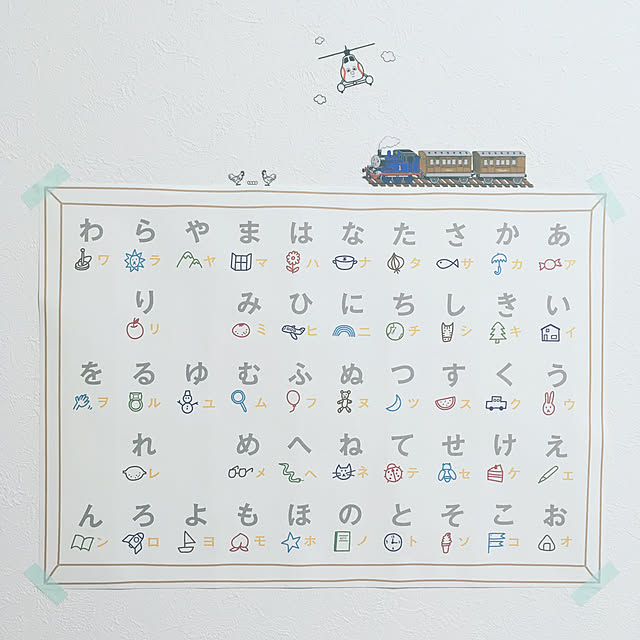 わ ら や ま は な た さ か あ
ワ ラ ヤ マ ハ ナ タ サ カ ア
り み ひ に ち し き い
リ ミ ヒ ニ チ シ キ イ
を る ゆ む ふ ぬ つ す く う
ヲ ル ユ ム フ ヌ ツ ス ク ウ
れ め へ ね て せ け え
レ メ ヘ ネ テ セ ケ エ
ん ろ よ も ほ の と そ こ お
ン ロ ヨ モ ホ ノ ト ソ コ オ